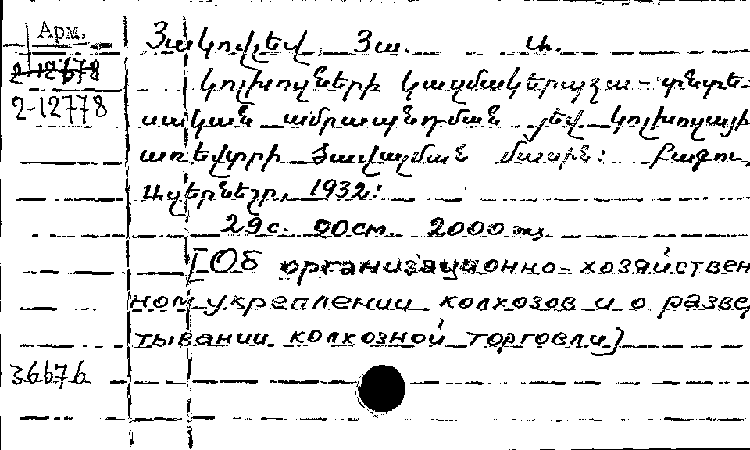 Арм.
Յակովլեվ Յա. Ա.
2-12678
Կոլխոզների կազմակերպչա-տնտե-
2-12778
սական ամրապնդման յեվ կոլխոզային
առեվտրի ծավալման մասին: Բագու,
Ազերնեշր, 1932:
29с. 20см. 2000 тэ
[Об организационно-хозяйствен
ном укреплении колхозов и о развер
тывании колхозной торговли]
36676